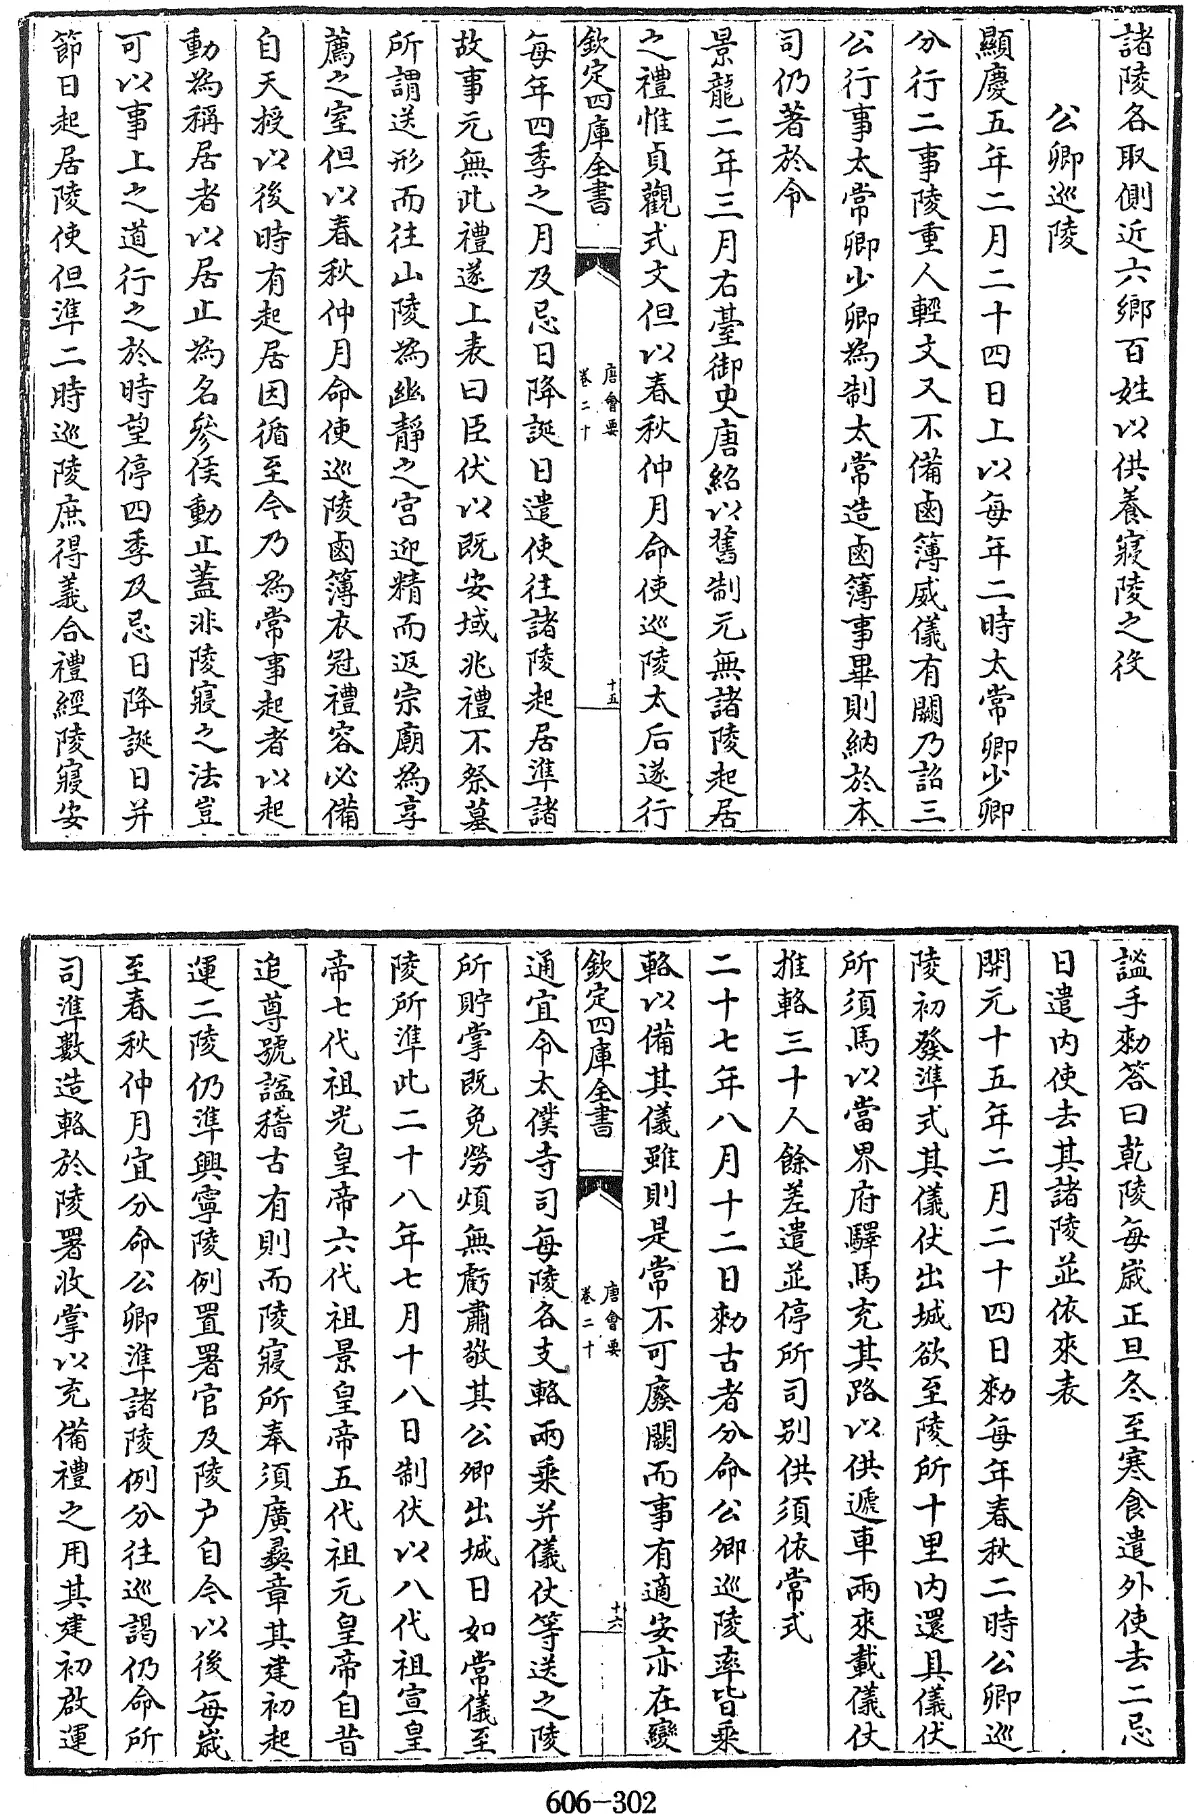 諸陵各取側近六鄉百姓以供養寢陵之役
公卿巡陵
顯慶五年二月二十四日上以每年二時太常卿少卿
分行二事陵重人輕文又不備鹵簿威儀有闕乃詔三
公行事太常卿少卿為制太常造鹵簿事畢則納於本
司仍著於令
景龍二年三月右臺御史唐紹以舊制元無諸陵起居
之禮惟貞觀式文但以春秋仲月命使巡陵太后遂行
欽定四庫全書
唐會要
卷二十
十五
每年四季之月及忌日降誕日遣使往諸陵起居準諸
故事元無此禮遂上表曰臣伏以既安域兆禮不祭墓
所謂送形而往山陵為幽靜之宮迎精而返宗廟為享
薦之室但以春秋仲月命使巡陵鹵簿衣冠禮容必備
自天授以後時有起居因循至今乃為常事起者以起
動為稱居者以居止為名參候動止蓋非陵寢之法豈
可以事上之道行之於時望停四季及忌日降誕日并
節日起居陵使但準二時巡陵庶得義合禮經陵寢安
謐手勑答曰乾陵每歲正旦冬至寒食遣外使去二忌
日遣内使去其諸陵並依來表
開元十五年二月二十四日勑每年春秋二時公卿巡
陵初發準式其儀仗出城欲至陵所十里内還具儀仗
所須馬以當界府驛馬充其路以供遞車兩來載儀仗
推輅三十人餘差遣並停所司别供須依常式
二十七年八月十二日勑古者分命公卿巡陵率皆乘
輅以備其儀雖則是常不可廢闕而事有適安亦在變
欽定四庫全書
唐會要
卷二十
十六
通宜令太僕寺司每陵各支輅兩乘并儀仗等送之陵
所貯掌既免勞煩無虧肅敬其公卿出城日如常儀至
陵所準此二十八年七月十八日制伏以八代祖宣皇
帝七代祖光皇帝六代祖景皇帝五代祖元皇帝自昔
追尊號謚稽古有則而陵寢所奉須廣彞章其建初起
運二陵仍準興寧陵例置署官及陵户自今以後每歲
至春秋仲月宜分命公卿準諸陵例分往巡謁仍命所
司準數造輅於陵署收掌以充備禮之用其建初啟運
606-302